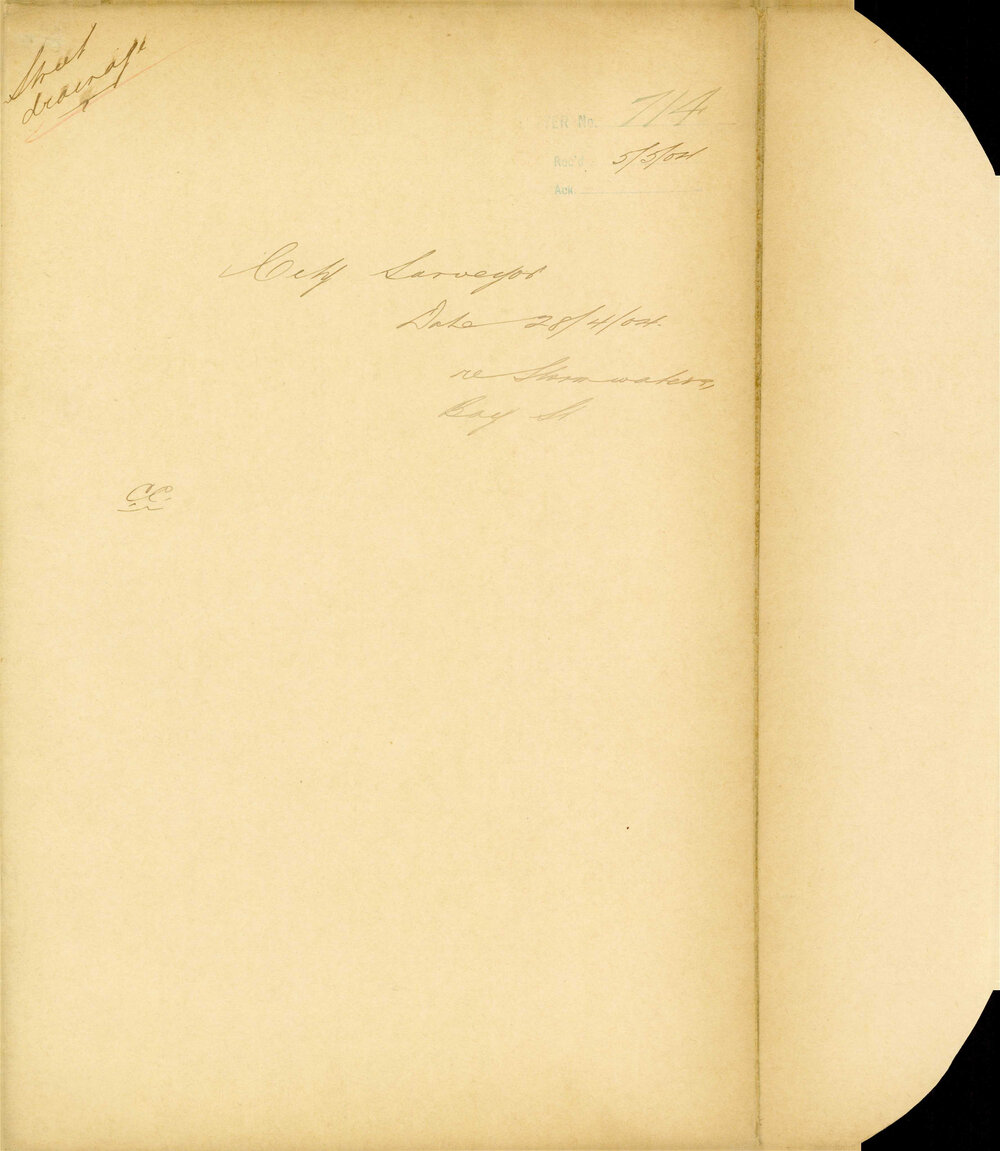 Street
drainage
No. 714
Rec'd 5/5/04
Ack.
City Surveyor
Date 28/4/04.
re Stormwaters,
Bay St
C.C.